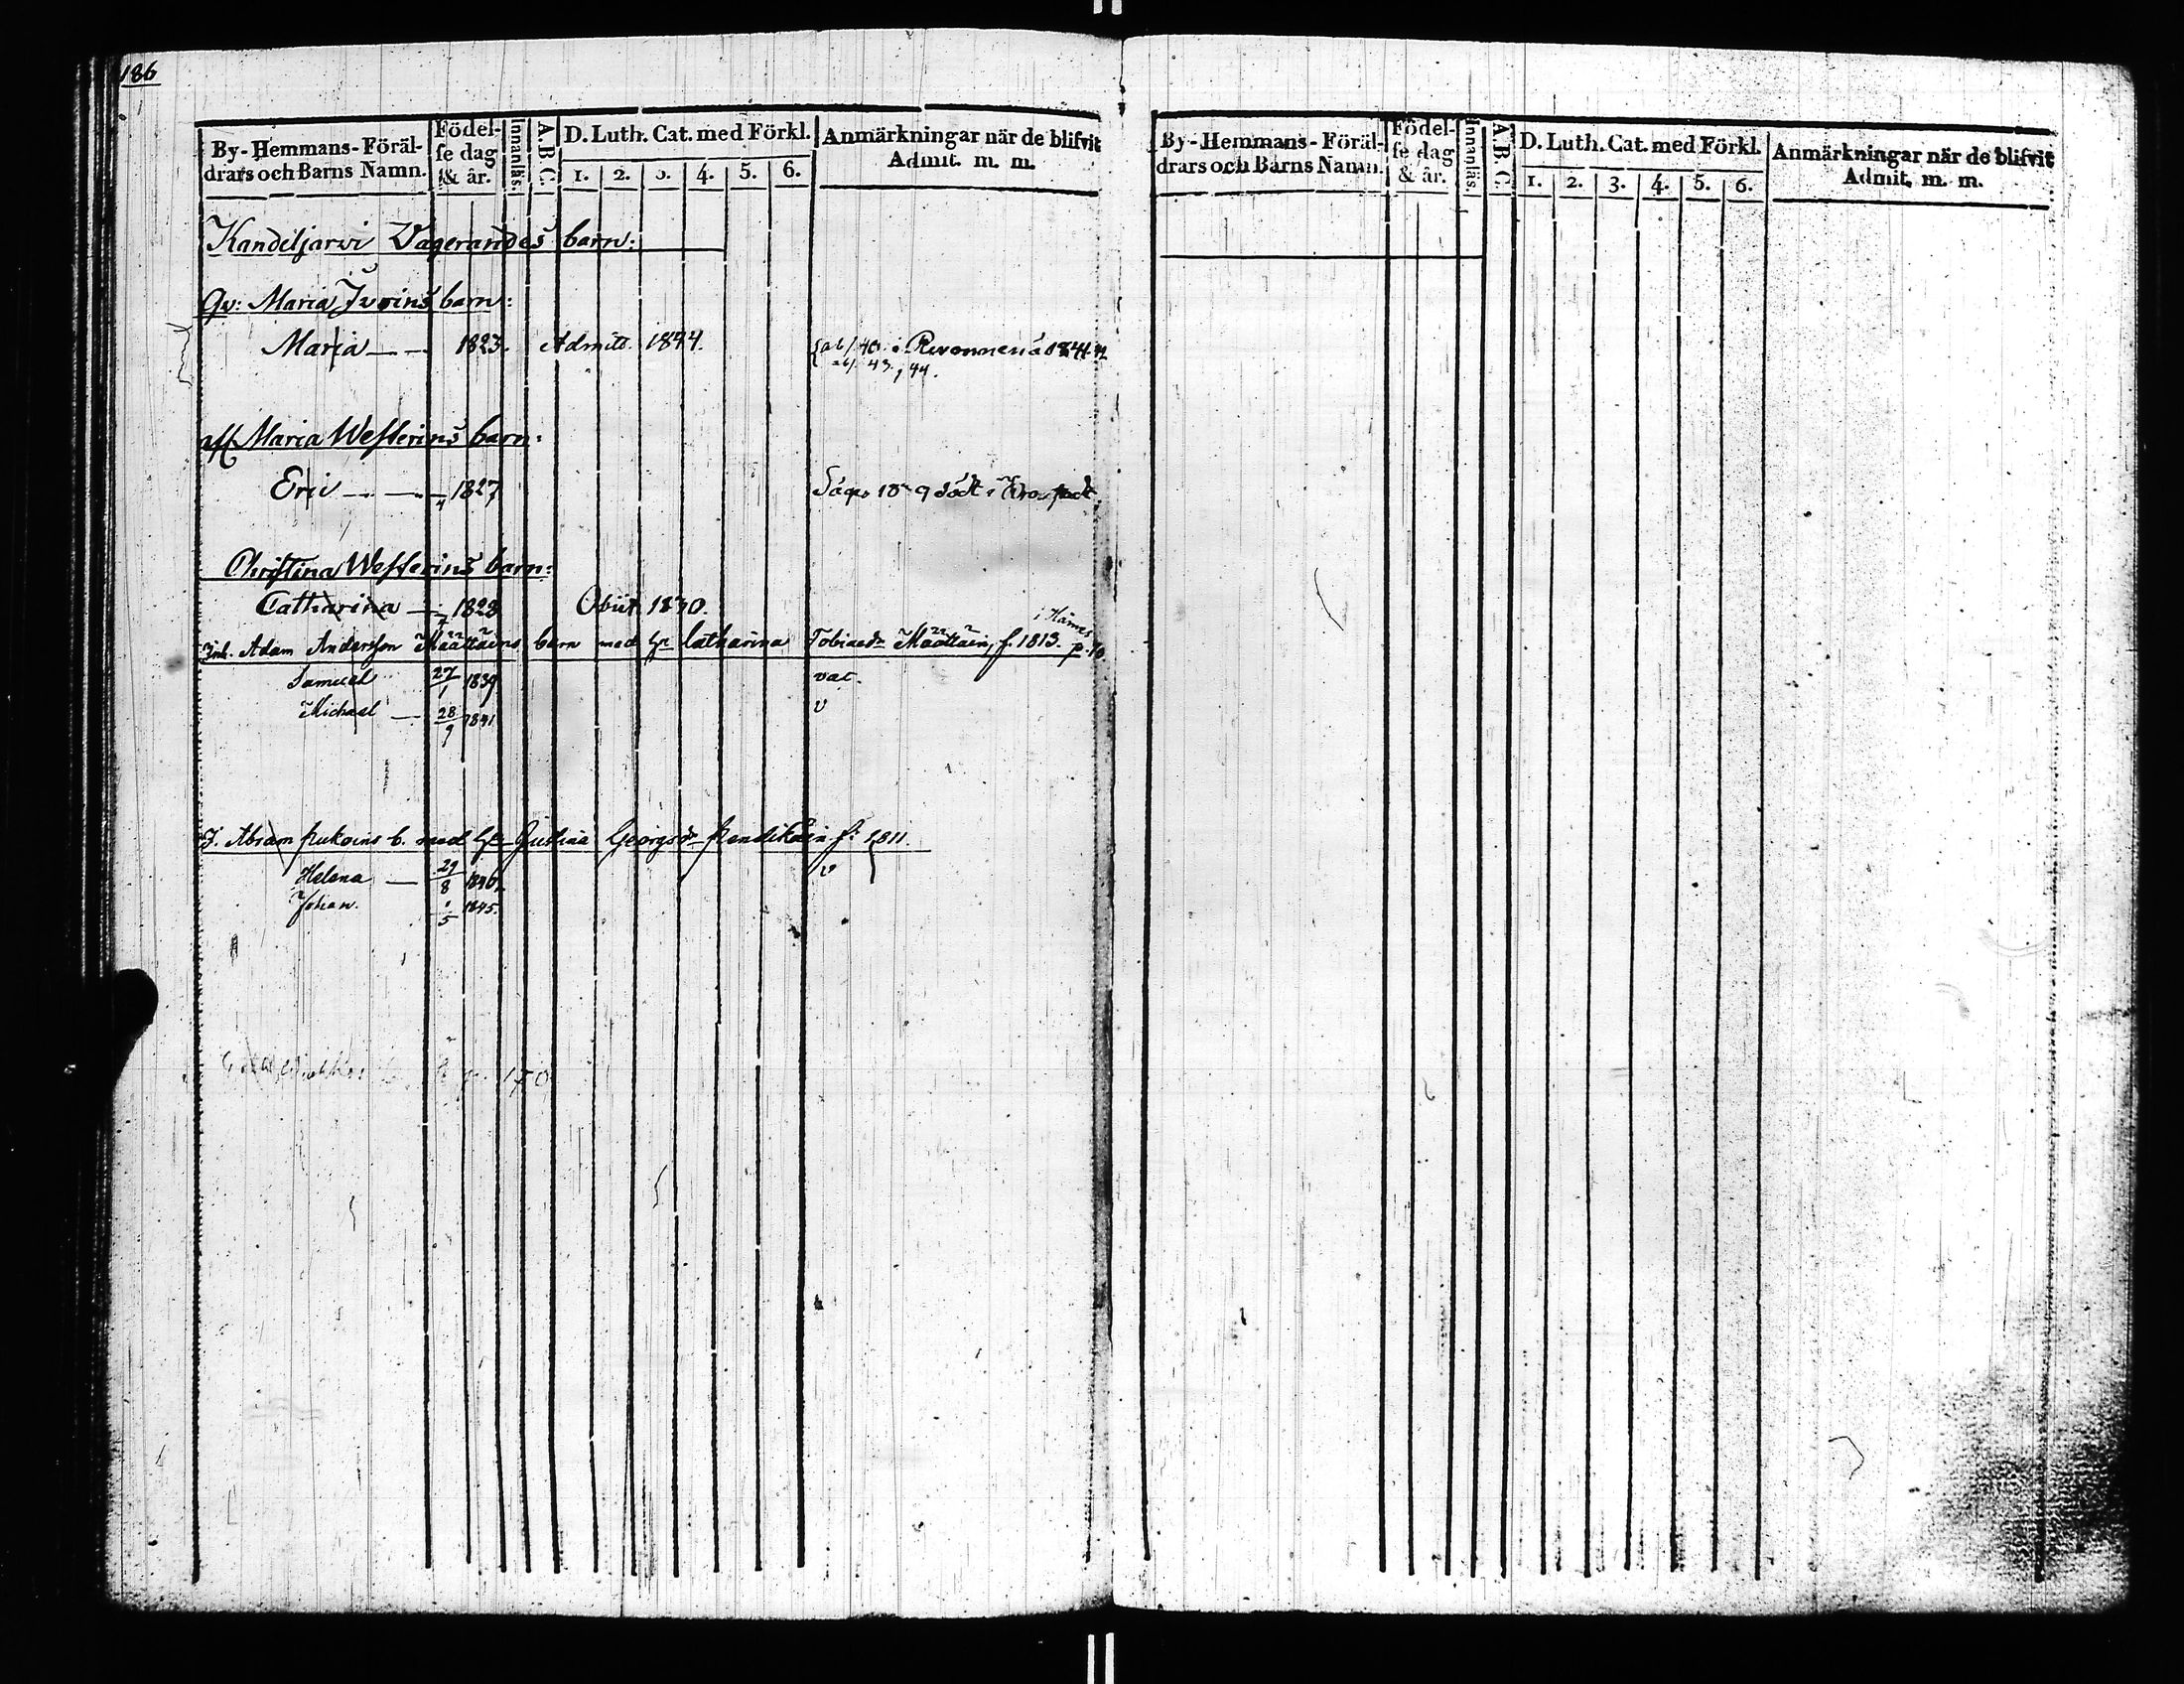 186
By-Hemmans-Föräl-
drars och Barns Namn.
Födel-
se dag
& år.
Innanläs.
A.B.C.
D. Luth. Cat. med Förkl.
1. 2. 3. 4. 5. 6.
Anmärkningar när de blifvit
Admit. m. m.
Kandeljarvi Vagerandes barn:
Qv: Maria Ivoins barn:
Maria 1823. Admitt. 1844.
ab/ 40. i 1841. 42
ab/. 43. 44.
Maria Westerins barn:
Eric 1827 Säges död i
Christina Westerins barn:
Catharina 1828 Obiit 1830.
Inh. Adam Andersson Määttäins barn med Catharina Tobiaedr Määttäin, f. 1813. p. 10.
Samuel 27/1 1839 vac.
Michael 28/9 1841 v
I. Abram b. med Justina Georgsdr f: 1811.
Helena 29/8 1840. v
Johan. 1/5 1845.
By-Hemmans-Föräl-
drars och Barns Namn.
Födel-
se dag
& år.
Innanläs.
A.B.C.
D. Luth. Cat. med Förkl.
1. 2. 3. 4. 5. 6.
Anmärkningar när de blifvit
Admit. m. m.